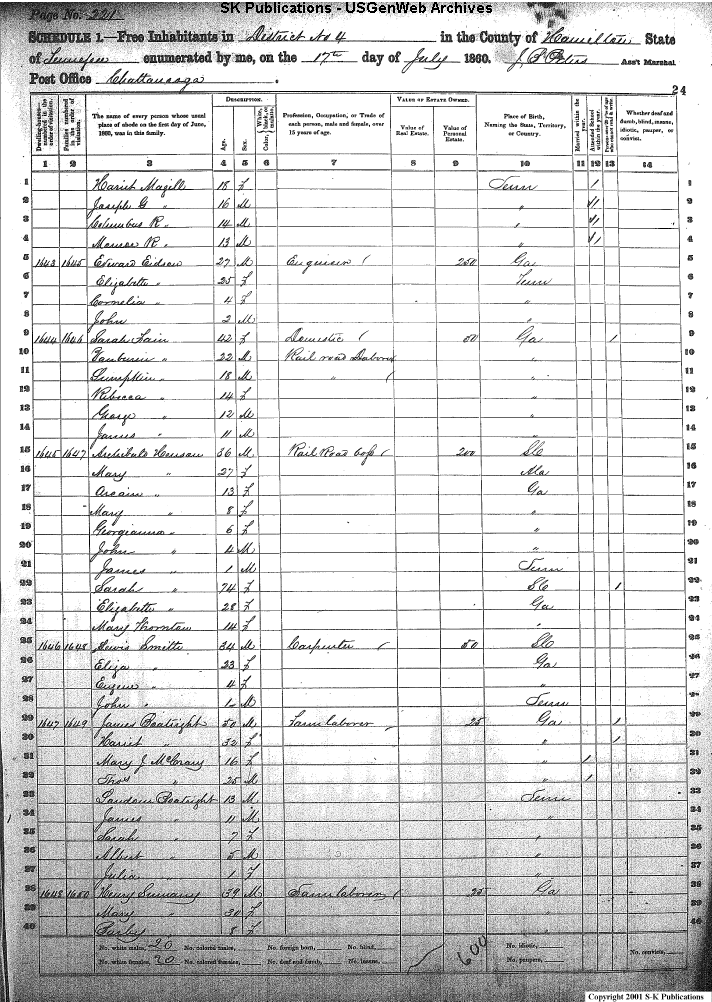 SK Publications - USGenWeb Archives
Page No. 221
SCHEDULE 1.—Free Inhabitants in District No 4 in the County of Hamilton State
of Tennessee enumerated by me, on the 17th day of July 1860. Ass't Marshal
Post Office Chattanooga.
24
Dwelling-houses—numbered in the order of visitation.
Families numbered in the order of visitation.
The name of every person whose usual place of abode on the first day of June, 1860, was in this family.
DESCRIPTION.
Age.
Sex.
Color
Profession, Occupation, or Trade of each person, male and female, over 15 years of age.
VALUE OF ESTATE OWNED.
Value of Real Estate.
Value of Personal Estate.
Place of Birth, Naming the State, Territory, or Country.
Married within the year.
Attended School within the year.
Whether deaf and dumb, blind, insane, idiotic, pauper, or convict.
1 2 3 4 5 6 7 8 9 10 11 12 13 14
1 Hariet Magill 18 f Tenn 1 1
2 Joseph G " 16 M " 1 2
3 Columbus R. " 14 M " 1 3
4 R. " 13 M " 1 4
5 1643 1645 Edward Eidson 27 M 250 Ga 5
6 Elizabeth " 25 f Tenn 6
7 Cornelia " 4 f " 7
8 John " 2 M " 8
9 1644 1646 Sarah Fain 42 f Domestic 50 Ga 1 9
10 " 22 M Rail road Laborer " 10
11 Lumpkin " 18 M " " 11
12 Rebecca " 14 f " 12
13 George " 12 M " 13
14 James " 11 M " 14
15 1645 1647 Archibald Henson 36 M Rail Road boss 200 SC 15
16 Mary " 27 f Ala 16
17 " 13 f Ga 17
18 Mary " 8 f " 18
19 Georgianna " 6 f " 19
20 John " 4 M " 20
21 James " 1 M Tenn 21
22 Sarah " 74 f SC 1 22
23 Elizabeth " 28 f Ga 23
24 Mary Thornton 14 f " 24
25 1646 1648 Lewis Smith 34 M Carpenter 50 SC 25
26 Eliza " 23 f Ga 26
27 Eugene " 4 f " 27
28 John " M Tenn 28
29 1647 1649 James Boatright 50 M Farm laborer 25 Ga 1 29
30 Hariet " 32 f " 1 30
31 Mary J McCrary 16 f " 1 31
32 Thos " 25 M " 1 32
33 Boatright 13 M Tenn 33
34 James " 11 M " 34
35 Sarah " 7 f " 35
36 Albert " 5 M " 36
37 Julia " 1 f " 37
38 1648 1650 Henry 39 M Farm laborer 25 Ga 38
39 Mary " 30 f " 39
40 8 f " 40
No. white males, 20 No. colored males, No. foreign born, No. blind, 600 No. idiotic, No. convicts,
No. white females, 20 No. colored females, No. deaf and dumb, No. insane, No. paupers,
Copyright 2001 S-K Publications